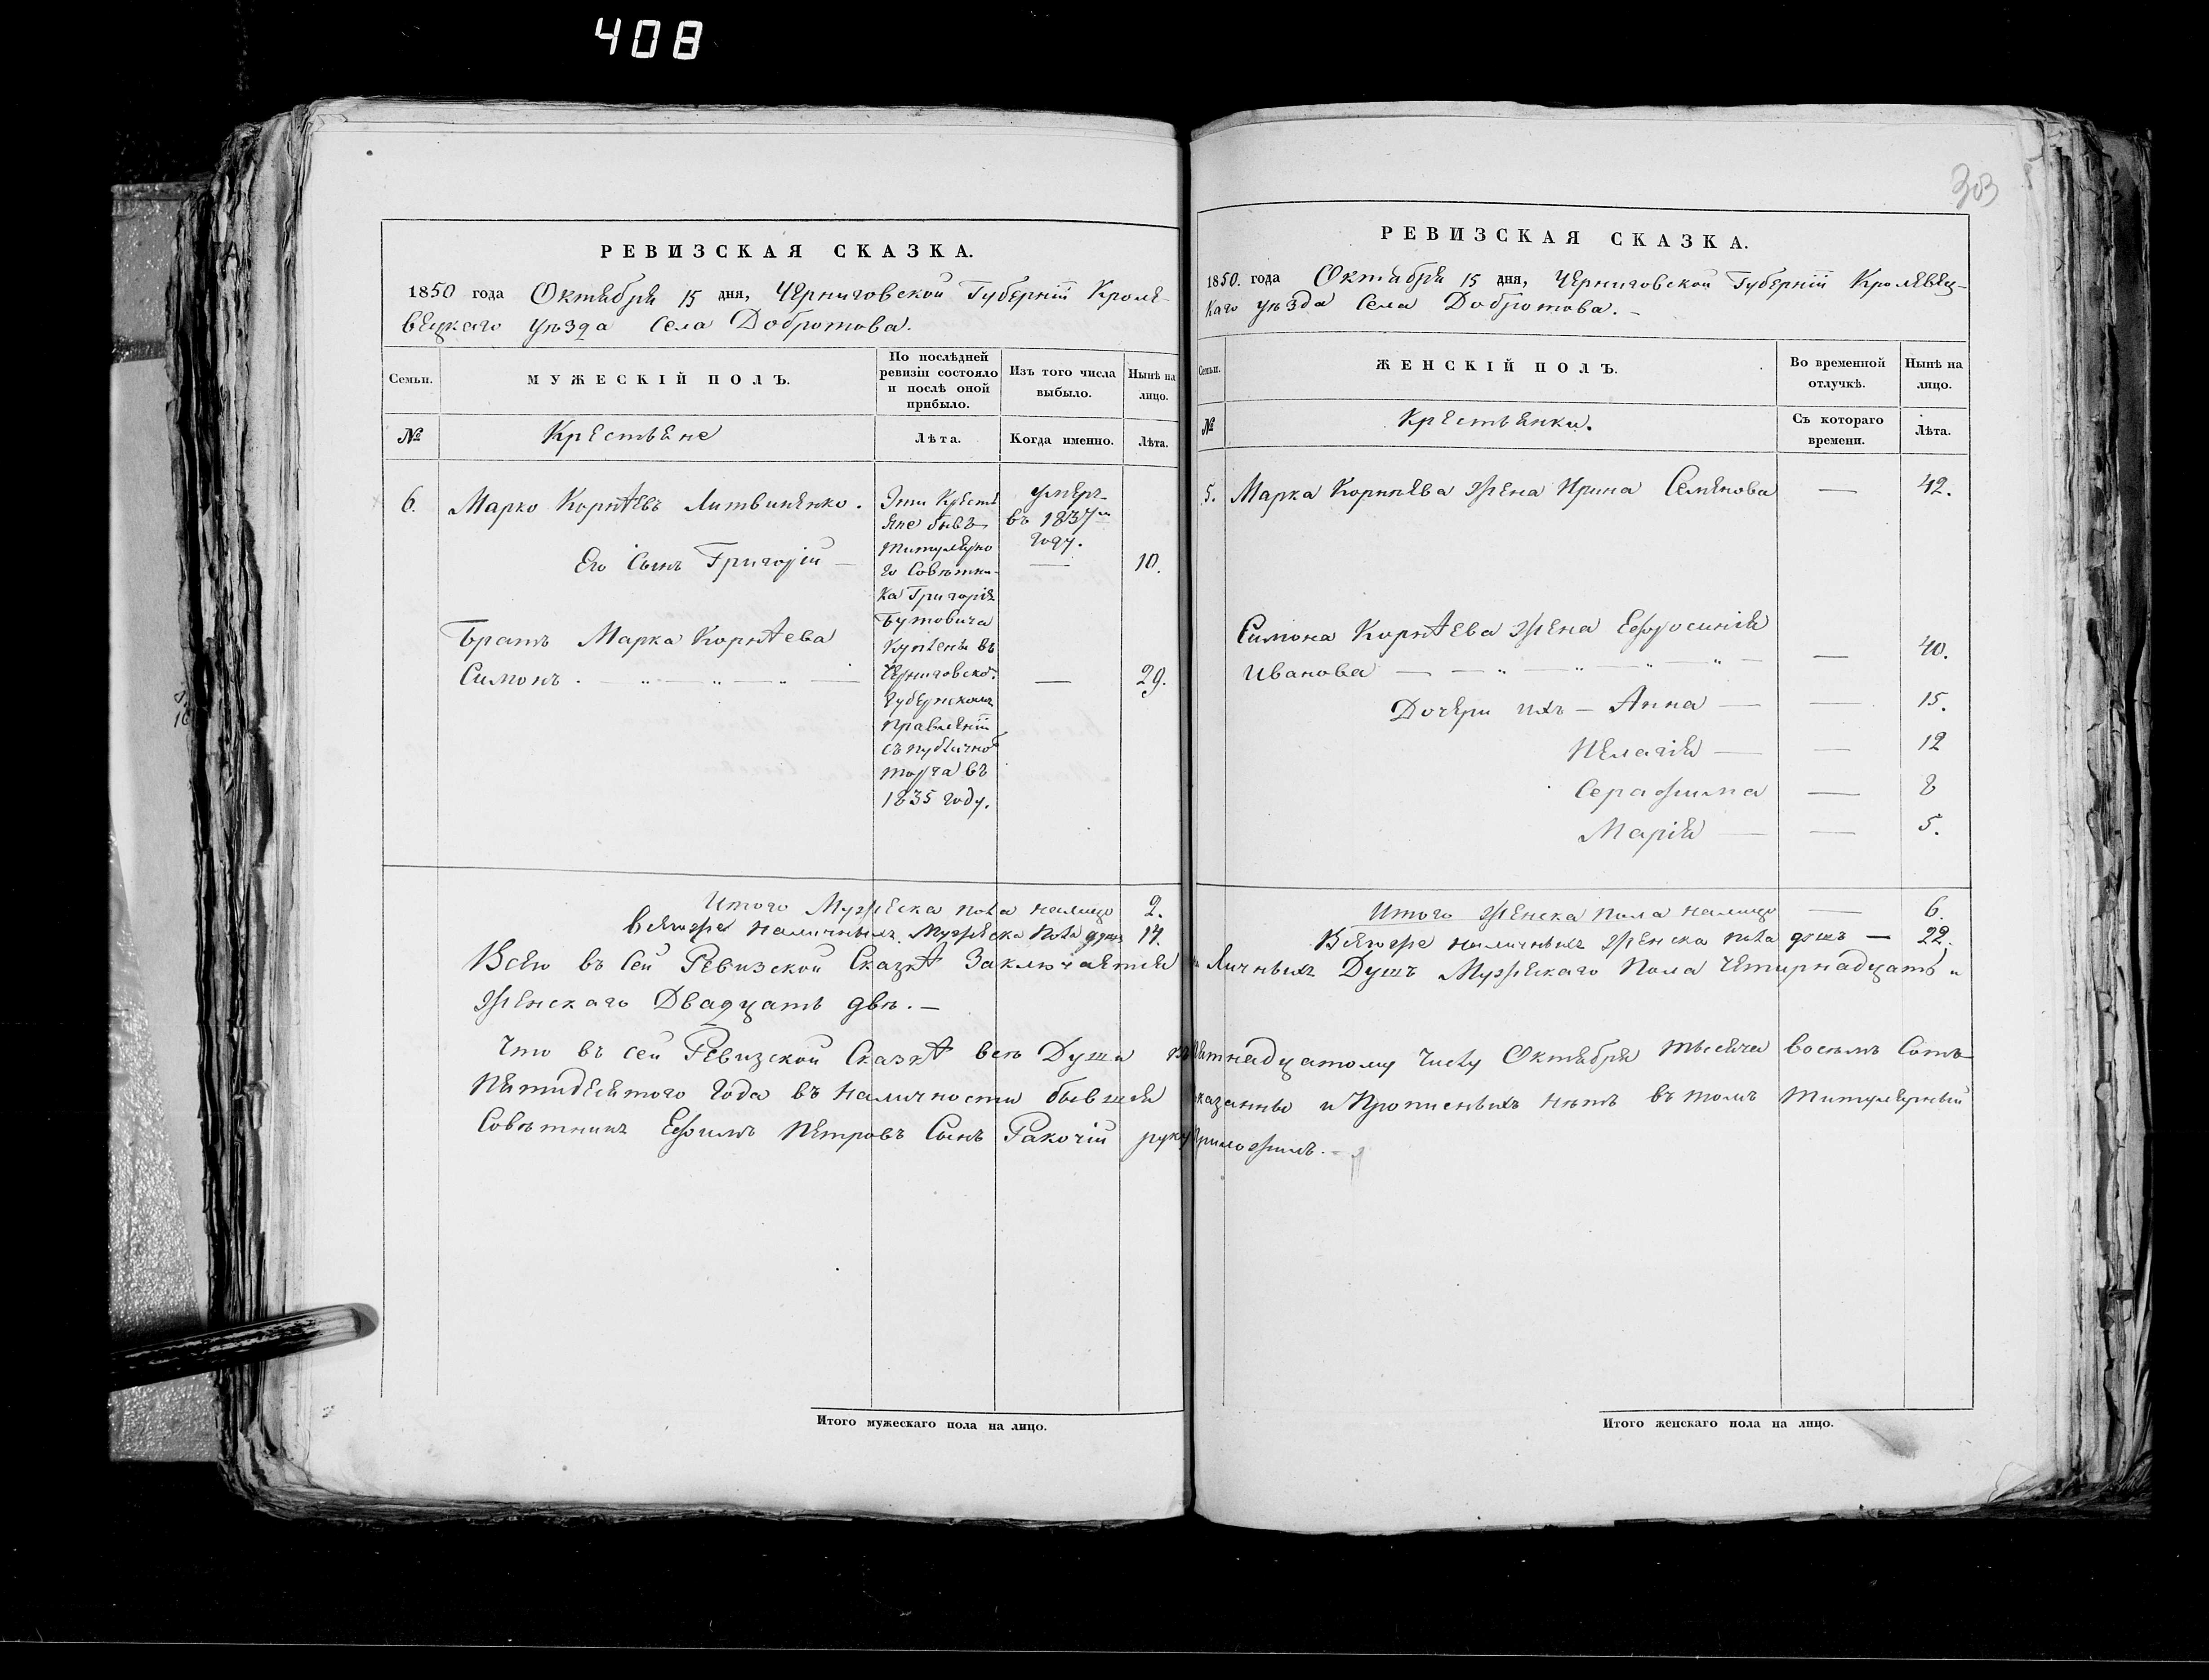 408
303
РЕВИЗСКАЯ СКАЗКА.
1850 года Октября 15 дня, Черниговской Губерніи Кроле-
вецкаго уѣзда Села Добротова.
Семьи.
МУЖЕСКІЙ ПОЛЪ.
По послѣдней
ревизіи состояло
и послѣ оной
прибыло.
Изъ того числа
выбыло.
Нынѣ на
лицо.
№
Крестьяне
Лѣта.
Когда именно.
Лѣта.
6.
Марко Корнѣевъ Литвиненко.
Его Сынъ Григорій —
10.
Братъ Марка Корнѣева
Симонъ.
29.
Эти Кресть
яне бывъ
титулярно
го Совѣтни-
ка Григорія
Бутовича
куплены въ
Черниговской
Губернскомъ
правленіи
съ публичной
торга въ
1835 году.
умеръ
въ 1837м
году.
—
—
Итого Мужеска пола налицо 2.
Всегоже наличныхъ Мужеска пола душъ 14.
РЕВИЗСКАЯ СКАЗКА.
1850. года Октября 15 дня, Черниговской Губерніи Кролевец-
каго уѣзда Села Добротова. —
Семьи.
ЖЕНСКІЙ ПОЛЪ.
Во временной
отлучкѣ.
Нынѣ на
лицо.
№
Крестьянки.
Съ котораго
времени.
Лѣта.
5. Марка Корнѣева жена Ирина Семенова — 42.
Симона Корнѣева жена Ефросинія
Иванова — 40.
Дочери ихъ — Анна — — 15.
Пелагія — — 12
Серафима — 8
Марія — — 5.
Итого женска пола налицо — 6.
Всегоже наличныхъ женска пола душъ — 22.
Всего въ сей Ревизской Сказкѣ Заключается наличныхъ Душъ Мужескаго Пола четырнадцать и
женскаго Двадцать двѣ. —
Что въ сей Ревизской Сказкѣ всѣ Души къ пятнадцатому числу Октября тысяча восемь Сотъ
Пятидесятого года въ наличности бывшія показанны и Прописныхъ нѣтъ въ томъ Титулярный
Совѣтникъ Ефимъ Петровъ Сынъ Ракочій руку приложилъ. —
Итого мужескаго пола на лицо.
Итого женскаго пола на лицо.